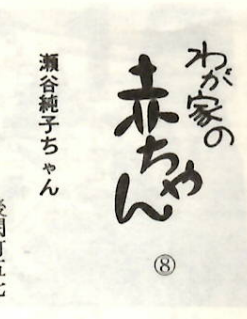 わが家の
赤ちゃん
⑧
瀬谷純子ちゃん